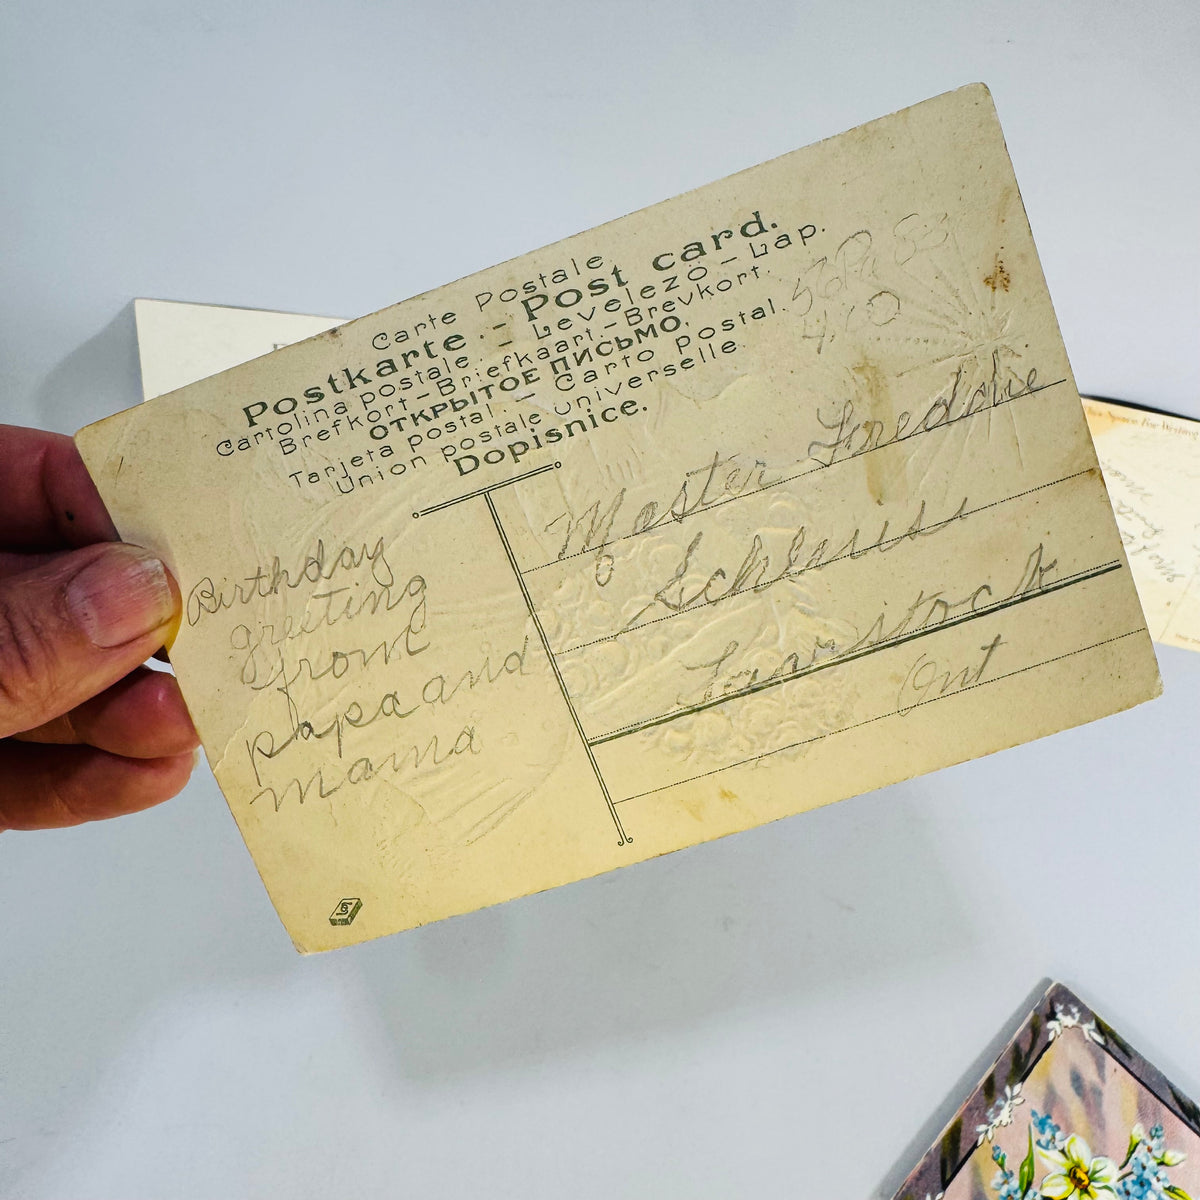 Carte Postale
Postkarte - Post card.
Cartolina postale. - Levelező-Lap.
Brefkort-Briefkaart-Brevkort.
ОТКРЫТОЕ ПИСЬМО.
Tarjeta postal. - Carto Postal.
Union postale universelle.
Dopisnice.
Birthday
greeting
from
papa and
mama
Master Freddie
Tavistock
Ont